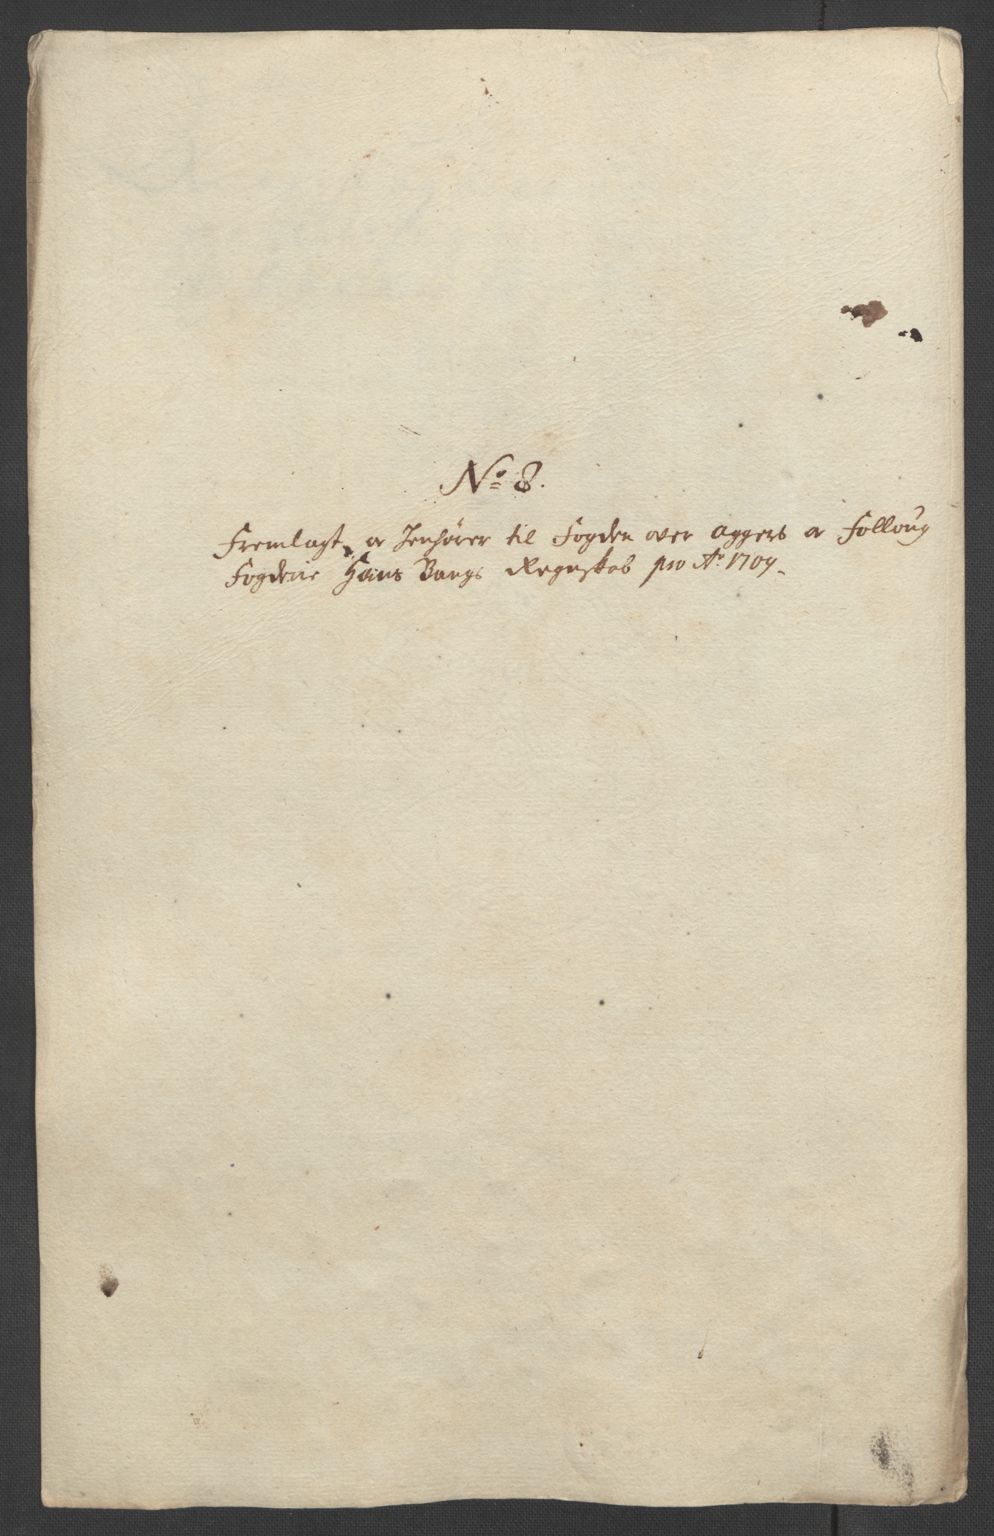 No 8.
Fremlagt, og Henhører til Fogden over Aggers og Folloug
Fogderie Hans Bangs Regnskab pro Ao 1709.